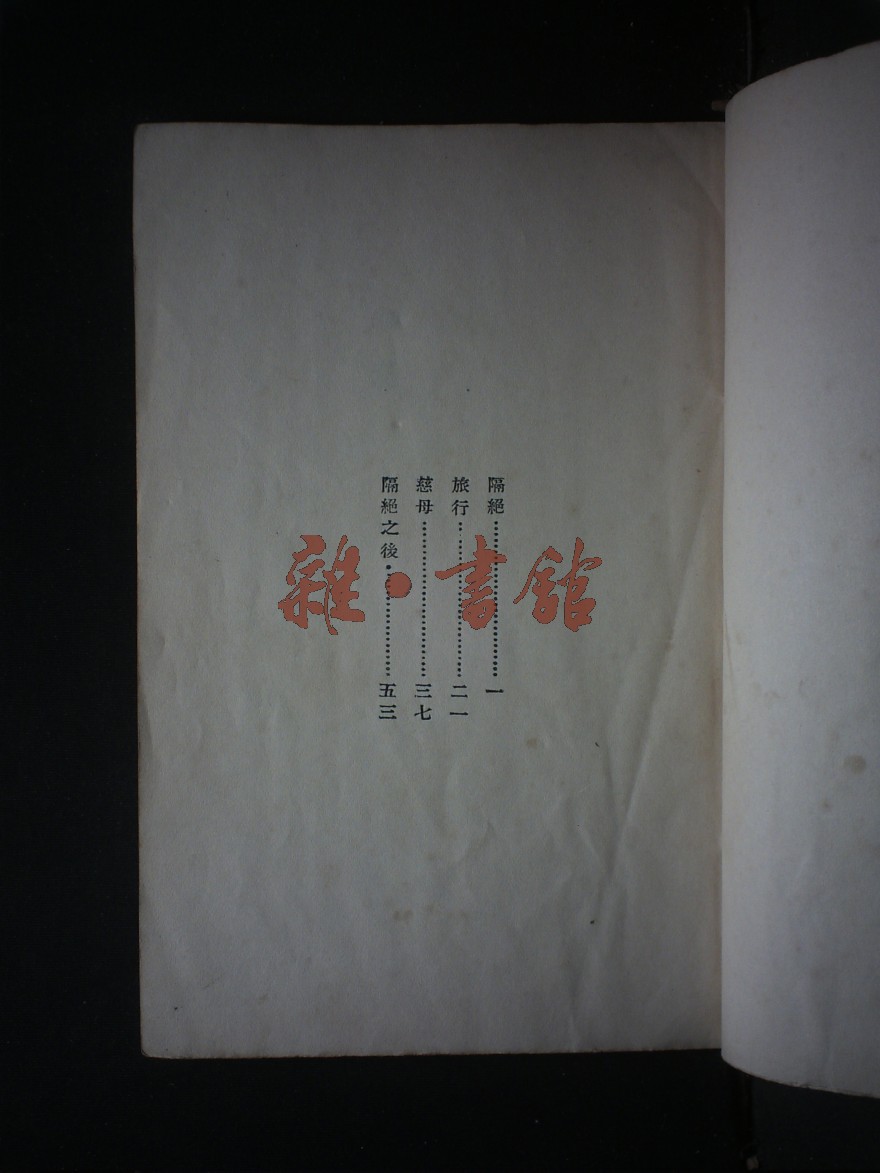 隔絕……………………一
旅行……………………二一
慈母……………………三七
隔絕之後………………五三
雜·書館